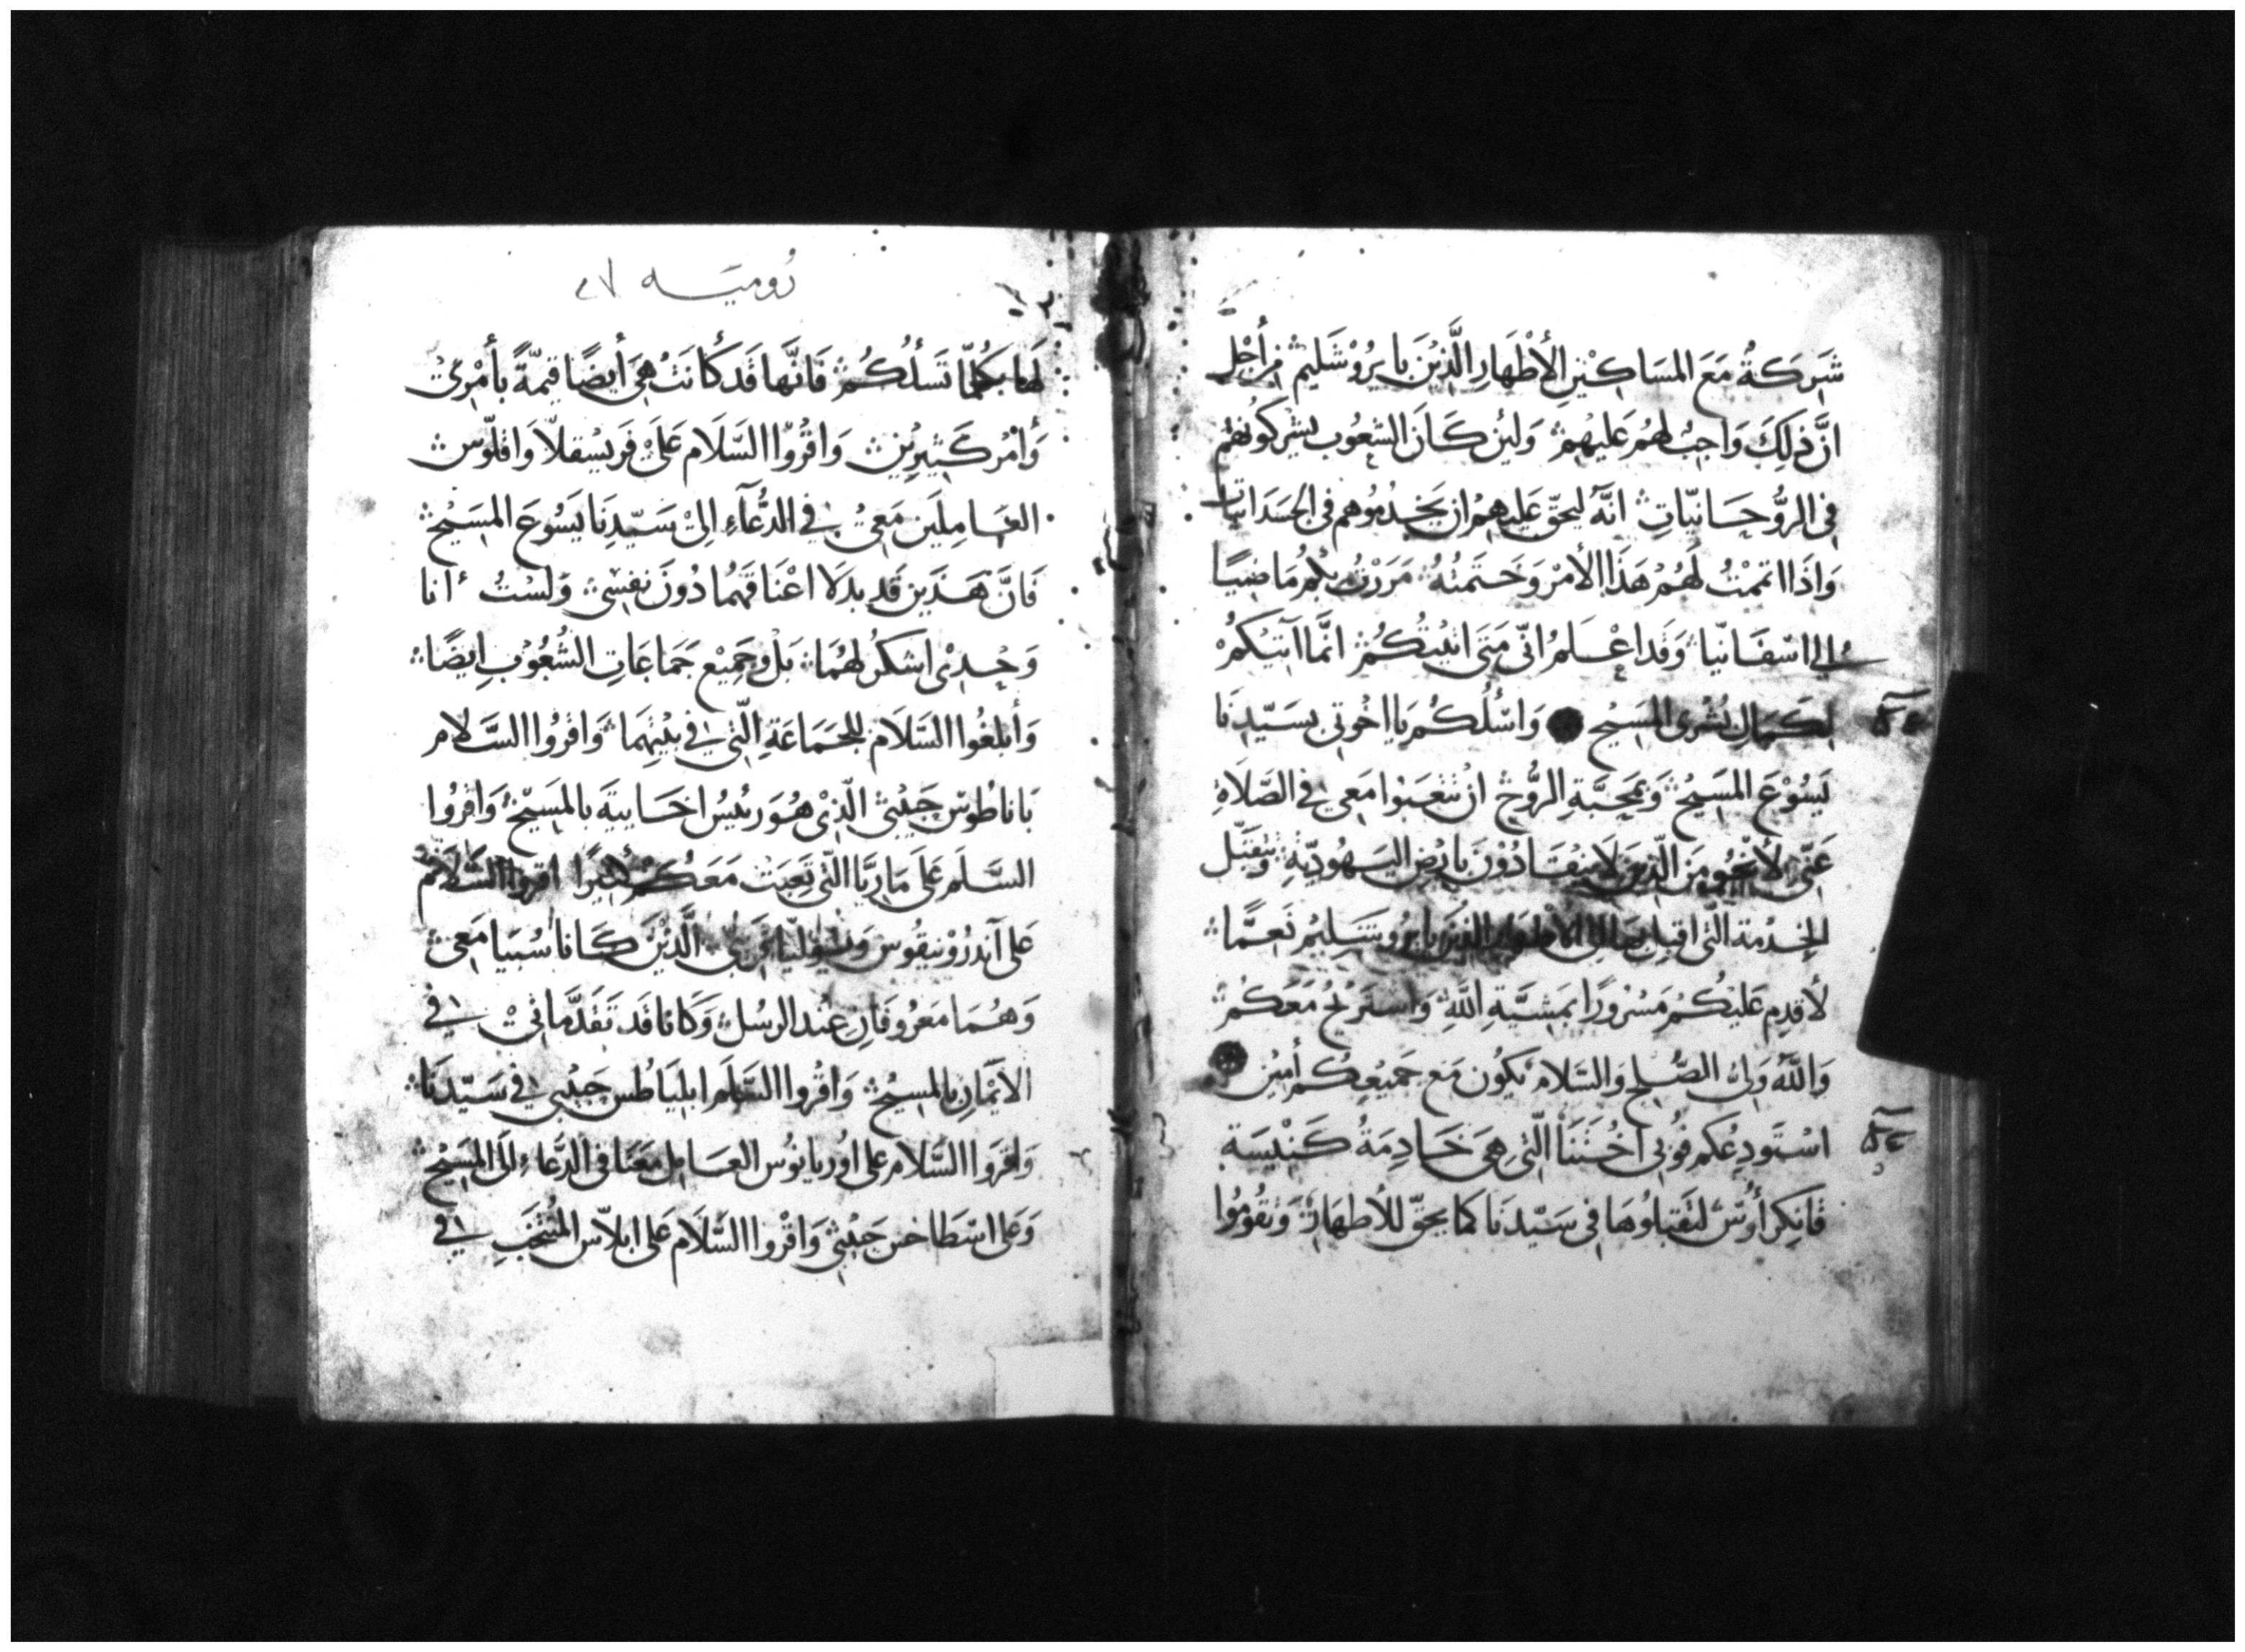 شَرِكَةُ مَعَ المسَاكِيْنِ الأطْهَارِ الَّذِيْنَ بايرُوْشَليم من أَجْلِ
انَّ ذَلِكَ وَاجِبٌ لهُمُ عَليهِمْ وَلَئِن كَانَ الشعُوب يشركُونهُم
فى الرُّوحَانيّاتِ انَّهُ ليحقّ عَليهِمُ ان يَخدُمُوهم فى الجسَدَانيّات
وَاذَا اتممْتُ لَهُمْ هَذَا الأمْرَ وَخَتَمتُهُ مَرَرْتُ بكُم مَاضِيًا
الى اسْفَانيّا وَقَد اعْلَمُ انّى مَتَى اتَيتُكُمْ انَّما اَتيْكُمْ
لكمَالِ بُشْرى المسِيح وَاسْلُكُم يَا اخْوتى بسَيّدِنَا
يَسُوْعَ المسَيح وَبمحَبَّةِ الرُّوح ان تتعَبوا مَعِى فى الصَّلَاةِ
عَنّى لأنْجُو مِنَ الّذينَ لَا ينقَادُوْنَ بارضِ اليَهُوديّةِ وَتتقبَّل
الخِدْمة الّتى اقبل بهَا الى الاطهار الذينَ بايرُوشَليمُ نَعِمَّا
لأقدم عَليْكُم مَسْرُورًا بمَشيَّةِ اللَّهِ وَاسْتريحُ مَعَكُمْ
وَاللَّهُ وَلىُّ الصُّلحِ وَالسّلَام يَكُون مَع جَميْعِكُم أمِين
اسْتَودِعُكم فُوبى اخُتَنَا الّتى هِىَ خَادِمَةُ كَنِيْسَةِ
قَانكِرأوُسْ لتَقبلُوهَا فى سَيّدنَا كَما يحقّ للأطهَارِ وَتقُوْمُوْا
روميه
لَهَا بكُلمّا تَسألُكُمْ فَانَّها قَد كأنَتْ هِىَ أيضًا قيمّةً بأمْرِى
وَأمْر كَثِيرِيْن وَاقْرُوا السَّلَام عَلَى فَريسْقلّا وَاقلّوسْ
العَامِلَين مَعِىْ فى الدُّعَآءِ الىْ سَيّدِنَا يَسُوعَ المسَيحْ
فَانَّ هَذَين قَد بدلَا اعْنَاقهُمَا دُونَ نفسِىْ وَلسْتُ انا
وَحْدِى اشكرُ لهُمَا بَلْ وجَميْع جَمَاعَاتِ الشُعُوْبِ ايضًا
وَأبلغُوا السَّلَام للجَمَاعَةِ الّتى فى بيْتهِمَا وَاقرُوا السَّلَام
بَاناطوُس حَبيْبى الّذِى هُوَ رَئيسُ اخَاييَةَ بالمسَيْح وَاقرُوا
السَّلَم عَلَى مَاريَّا الّتى تَعِبَتْ مَعَكُم كثيرًا اقروا السَّلَام
عَلى آندرُوْنيقُوس وَيُوليّا قَرَابتى الَّذَيْنَ كَانا سُبيَا مَعِى
وَهُمَا مَعرُوفَانِ عِنْد الرسُل وَكَانا قَد تقَدَّمَانىْ فى
الأيمَانِ بالمسِيحْ وَاقْرُوا السَّلَم ابليَاطُس حَبيْبى فى سَيّدنَا
وَاقرَوا السَّلام على اوُربانوُس العَامل مَعَنا فى الدُّعَاءِ الَى المَسِيْح
وَعَلى اسْطَاخس حَبيْبى وَاقْروا السَّلَام عَلى ابلّاس المنْتخَبِ فى